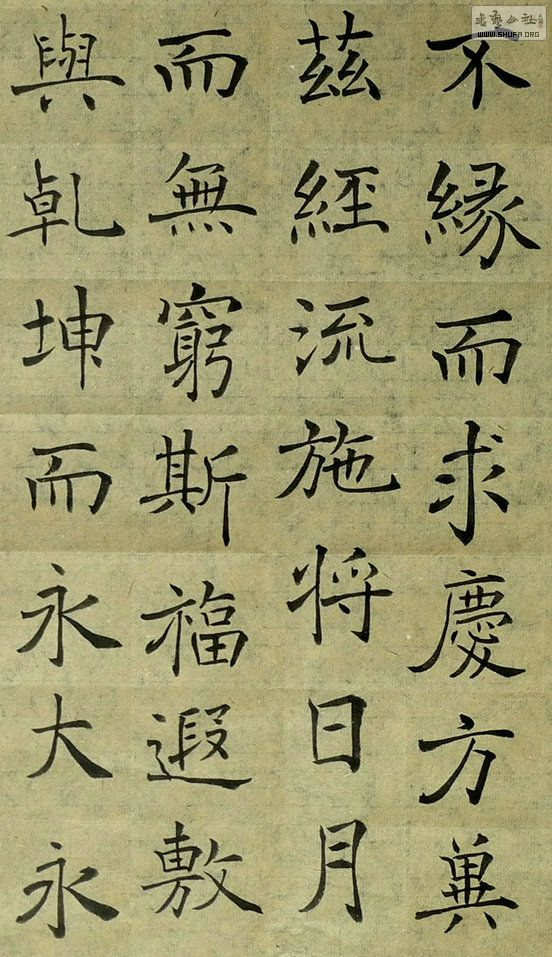 不縁而求慶方冀
茲經流施将日月
而無窮斯福遐敷
與乹坤而永大永
书艺公社
WWW.SHUFA.ORG